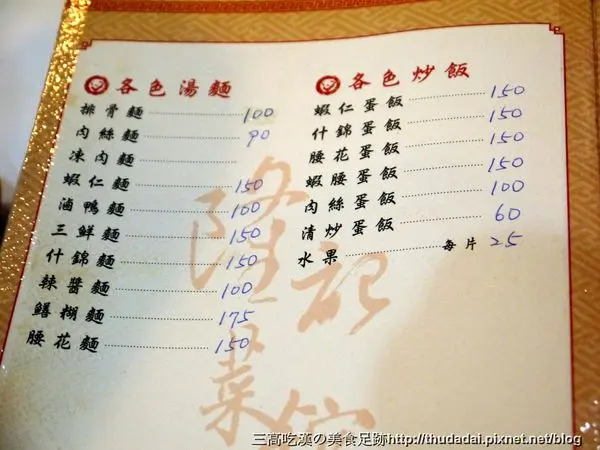 各色湯麵
排骨麵 100
肉絲麵 90
凍肉麵
蝦仁麵 150
滷鴨麵 100
三鮮麵 150
什錦麵 150
辣醬麵 100
鱔糊麵 175
腰花麵 150
各色炒飯
蝦仁蛋飯 150
什錦蛋飯 150
腰花蛋飯 150
蝦腰蛋飯 150
肉絲蛋飯 100
清炒蛋飯 60
水果 每片 25
隆記
菜館
三高吃漢の美食足跡http://thudadai.pixnet.net/blog